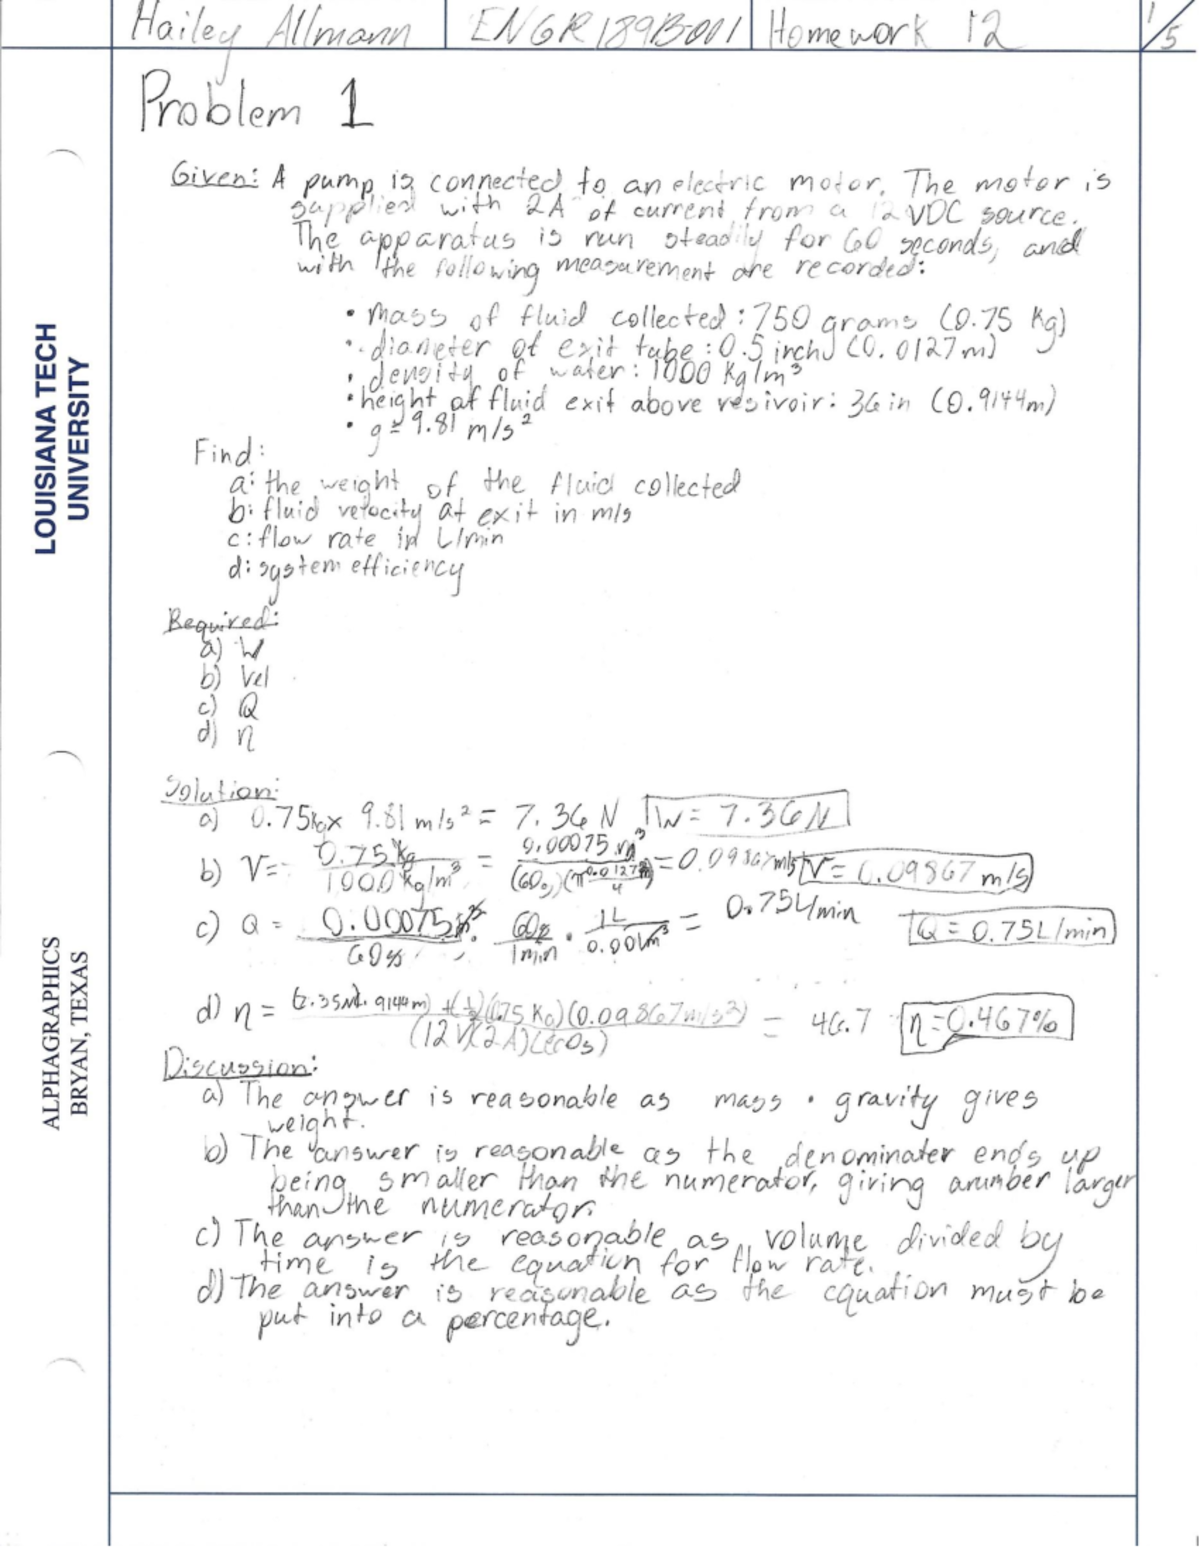 Hailey Allmann ENGR189B001 Homework 12 1/5
Problem 1
LOUISIANA TECH
UNIVERSITY
ALPHAGRAPHICS
BRYAN, TEXAS
Given: A pump is connected to an electric motor. The motor is
supplied with 2A of current from a 12 VDC source.
The apparatus is run steadily for 60 seconds, and
with the following measurement are recorded:
• mass of fluid collected: 750 grams (0.75 Kg)
• diameter of exit tube: 0.5 inch (0.0127m)
• density of water: 1000 Kg/m³
• height of fluid exit above resivoir: 36 in (0.9144m)
• g = 9.81 m/s²
Find:
a: the weight of the fluid collected
b: fluid velocity at exit in m/s
c: flow rate in L/min
d: system efficiency
Required:
a) W
b) Vel
c) Q
d) η
Solution:
a) 0.75kg x 9.81 m/s² = 7.36 N W = 7.36N
b) V = 0.75 kg / 1000 kg/m³ = 0.00075 m³ / (60s)(π 0.0127m / 4) = 0.09867m/s V = 0.09867 m/s
c) Q = 0.00075 m³ / 60s • 60s / 1min • 1L / 0.001m³ = 0.75L/min Q = 0.75L/min
d) η = (7.35N • .9144m) + (1/2)(0.75 Kg)(0.09867m/s²) / (12 V)(2A)(60s) = 46.7 η = 0.467%
Discussion:
a) The answer is reasonable as mass • gravity gives
weight.
b) The answer is reasonable as the denominater ends up
being smaller than the numerator, giving a number larger
than the numerator.
c) The answer is reasonable as volume divided by
time is the equation for flow rate.
d) The answer is reasonable as the equation must be
put into a percentage.